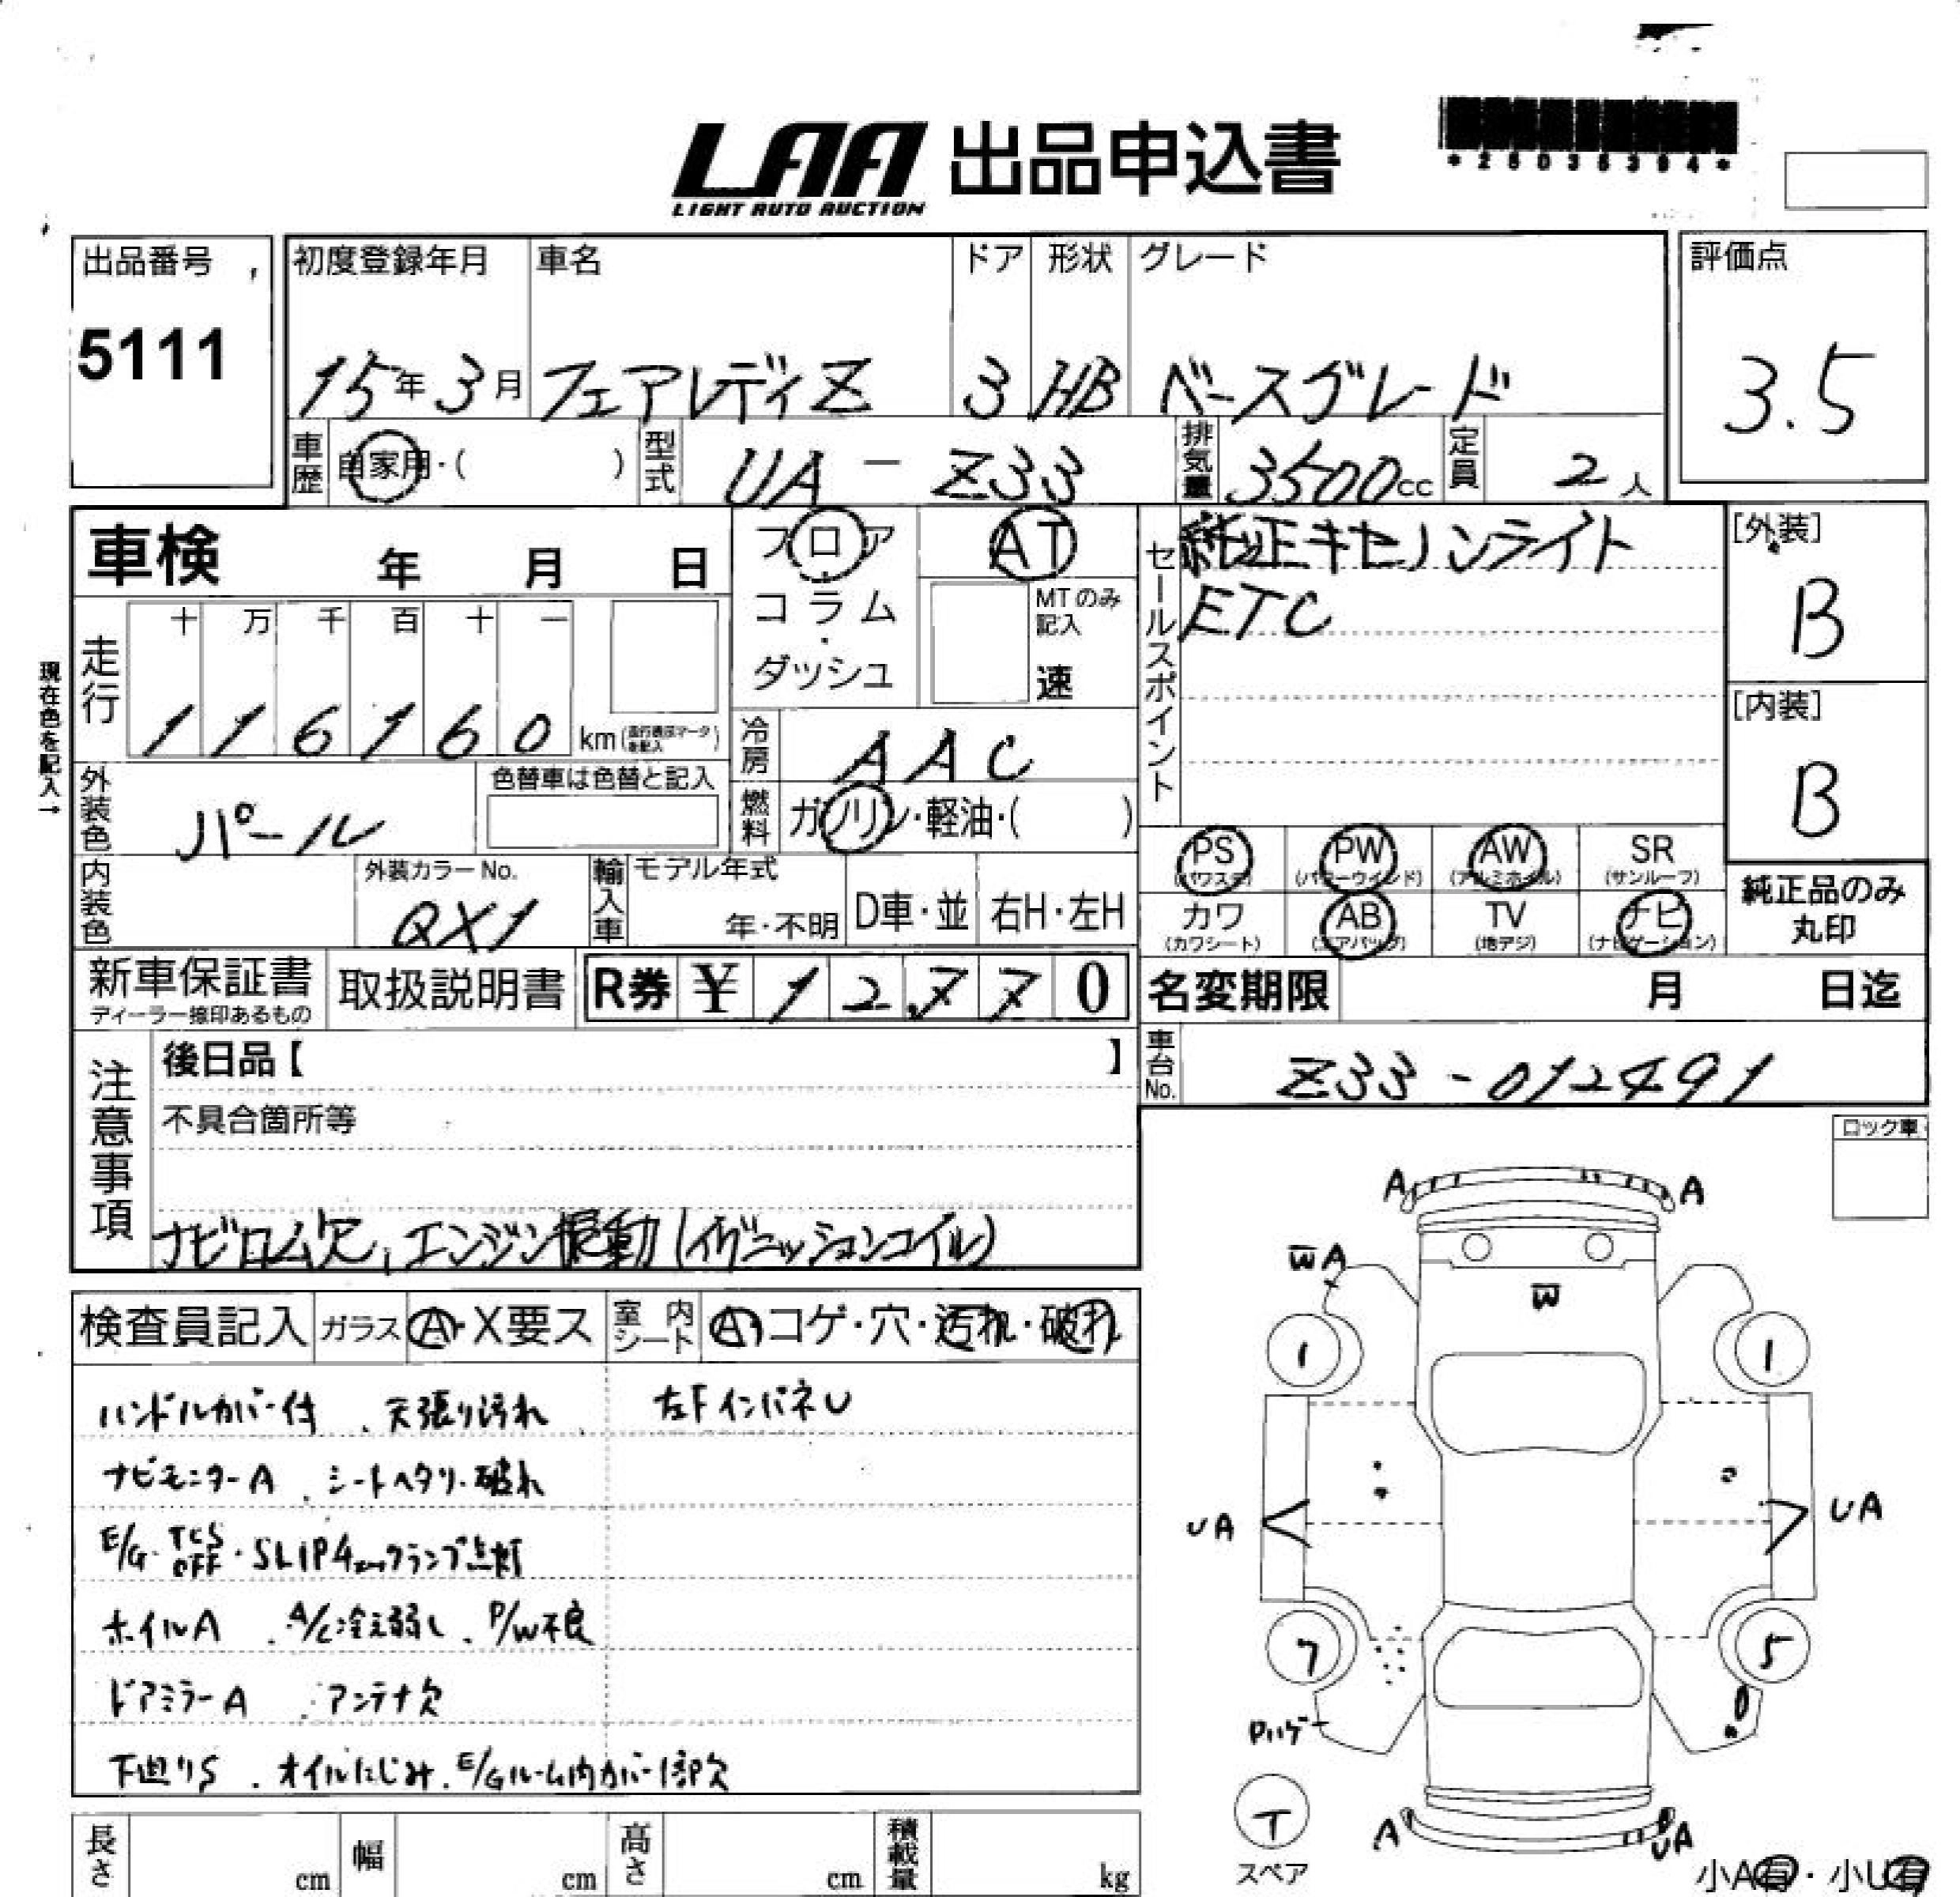 LAA 出品申込書
LIGHT AUTO AUCTION
*25035394*
出品番号
5111
初度登録年月 車名 ドア 形状 グレード
15年3月 フェアレディZ 3 HB ベースグレード
評価点
3.5
車歴 自家用・( ) 型式 UA-Z33 排気量 3500cc 定員 2人
車検 年 月 日
フロア・コラム・ダッシュ
AT
MTのみ記入
速
セールスポイント
純正キセノンライト
ETC
[外装]
B
[内装]
B
現在色を記入→
走行
十 万 千 百 十 一
1 1 6 1 6 0 km
冷房 AAC
外装色 パール
色替車は色替と記入
燃料 ガソリン・軽油・( )
内装色
外装カラーNo.
QX1
輸入車 モデル年式
年・不明 D車・並 右H・左H
PS (パワステ) PW (パワーウインド) AW (アルミホイル) SR (サンルーフ)
カワ (カワシート) AB (エアバッグ) TV (地デジ) ナビ (ナビゲーション)
純正品のみ
丸印
新車保証書
ディーラー捺印あるもの
取扱説明書
R券 ¥ 12,770
名変期限 月 日迄
車台No. Z33-012491
注意事項
後日品【 】
不具合箇所等
ナビロム欠、エンジン振動(イグニッションコイル)
ロック車
検査員記入 ガラス A・X要ス 室内シート A・コゲ・穴・汚れ・破れ
ハンドルカバー付 、天張り汚れ 左FインパネU
ナビモニターA 、シートヘタリ・破れ
E/G・TCS OFF・SLIP ランプ点灯
ホイルA 、A/C冷え弱し、P/W不良
ドアミラーA 、アンテナ欠
下廻りS 、オイルにじみ、E/Gルーム内カバー1部欠
A A
WA
W
1 1
UA UA
7 5
Pハゲ
T
スペア
A UA
小A有・小U有
長さ cm 幅 cm 高さ cm 積載量 kg